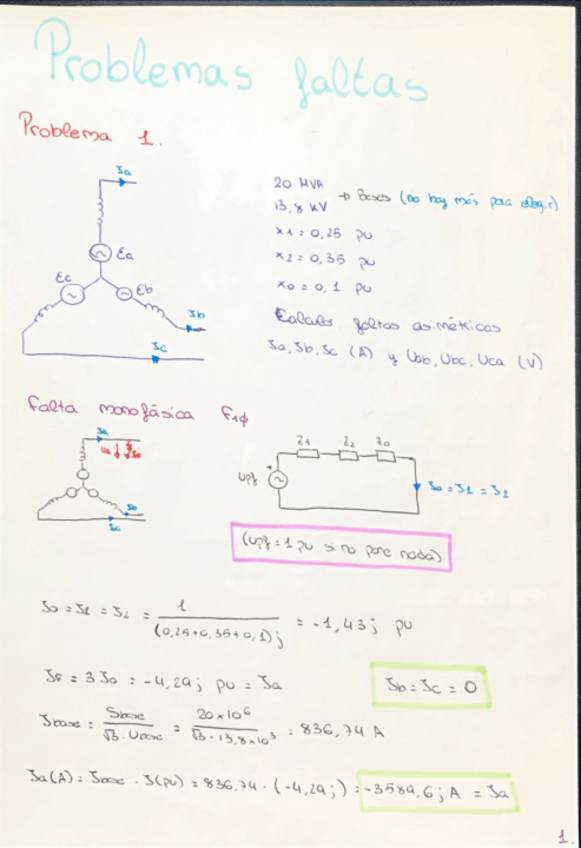 Problemas faltas
Problema 1.
Ia
Ea
Ec
Eb
Ib
Ic
20 MVA
13,8 kV
→ Bases (no hay más para elegir)
x1 = 0,25 pu
x2 = 0,35 pu
x0 = 0,1 pu
Calcular faltas asimétricas
Ia, Ib, Ic (A) y Uab, Ubc, Uca (V)
Falta monofásica F1φ
Ia
Ua
Ib
Ic
Z1 Z2 Z0
Upf
I0 = I1 = I2
(Upf = 1 pu si no pone nada)
I0 = I1 = I2 = 1 / (0,25+0,35+0,1)j = -1,43j pu
If = 3 I0 = -4,29j pu = Ia
Ib = Ic = 0
Ibase = Sbase / √3 · Ubase = 20×10⁶ / √3 · 13,8×10³ = 836,74 A
Ia(A) = Ibase · I(pu) = 836,74 · (-4,29j) = -3589,6j A = Ia
1.